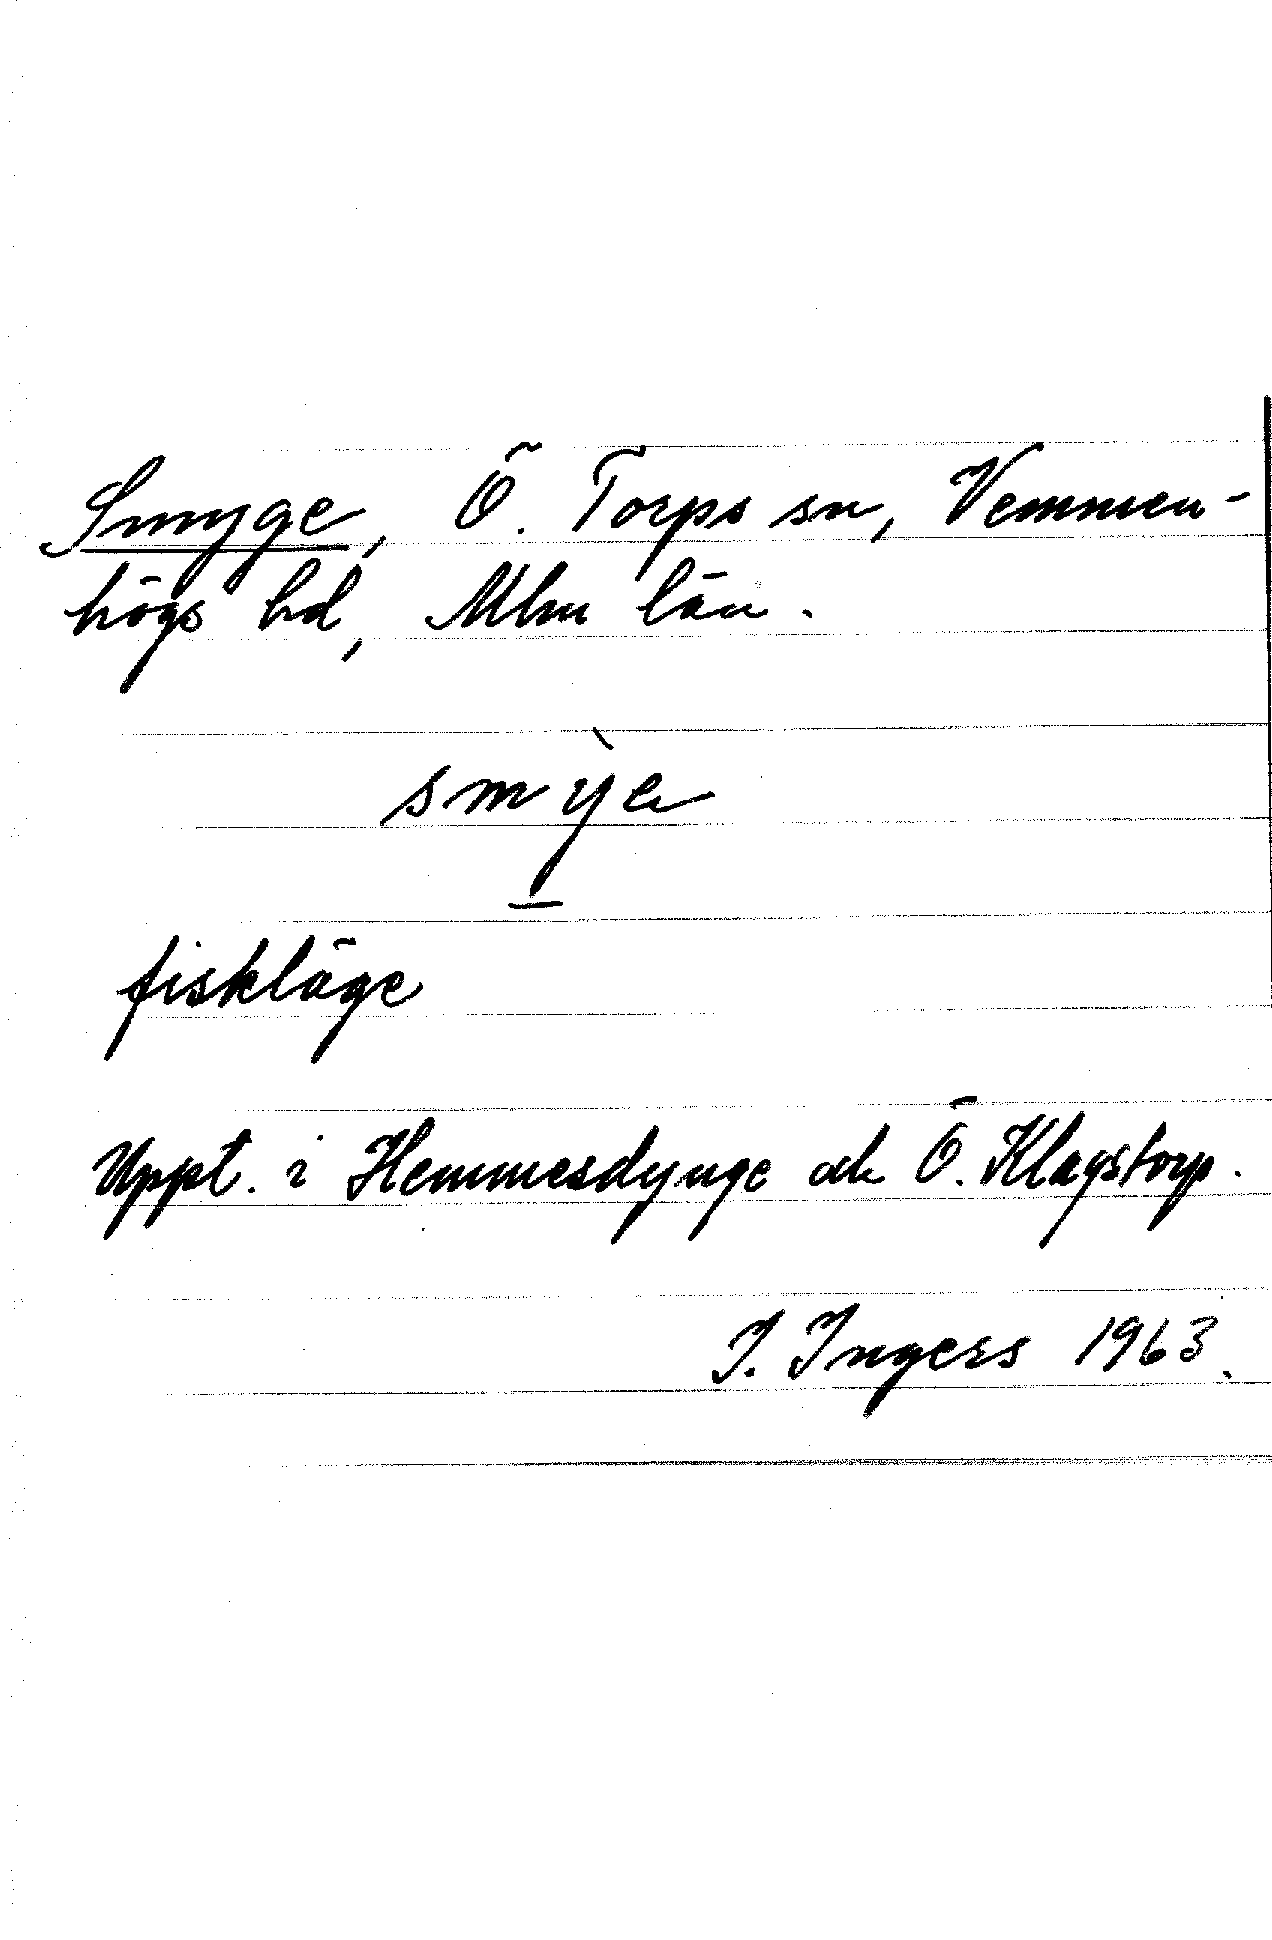 Smyge, Ö. Torps sn, Vemmen-
högs hd, Mlm län.
smỳe
fiskläge
Uppt. i Hemmesdynge ok Ö. Klagstorp.
I. Ingers 1963.